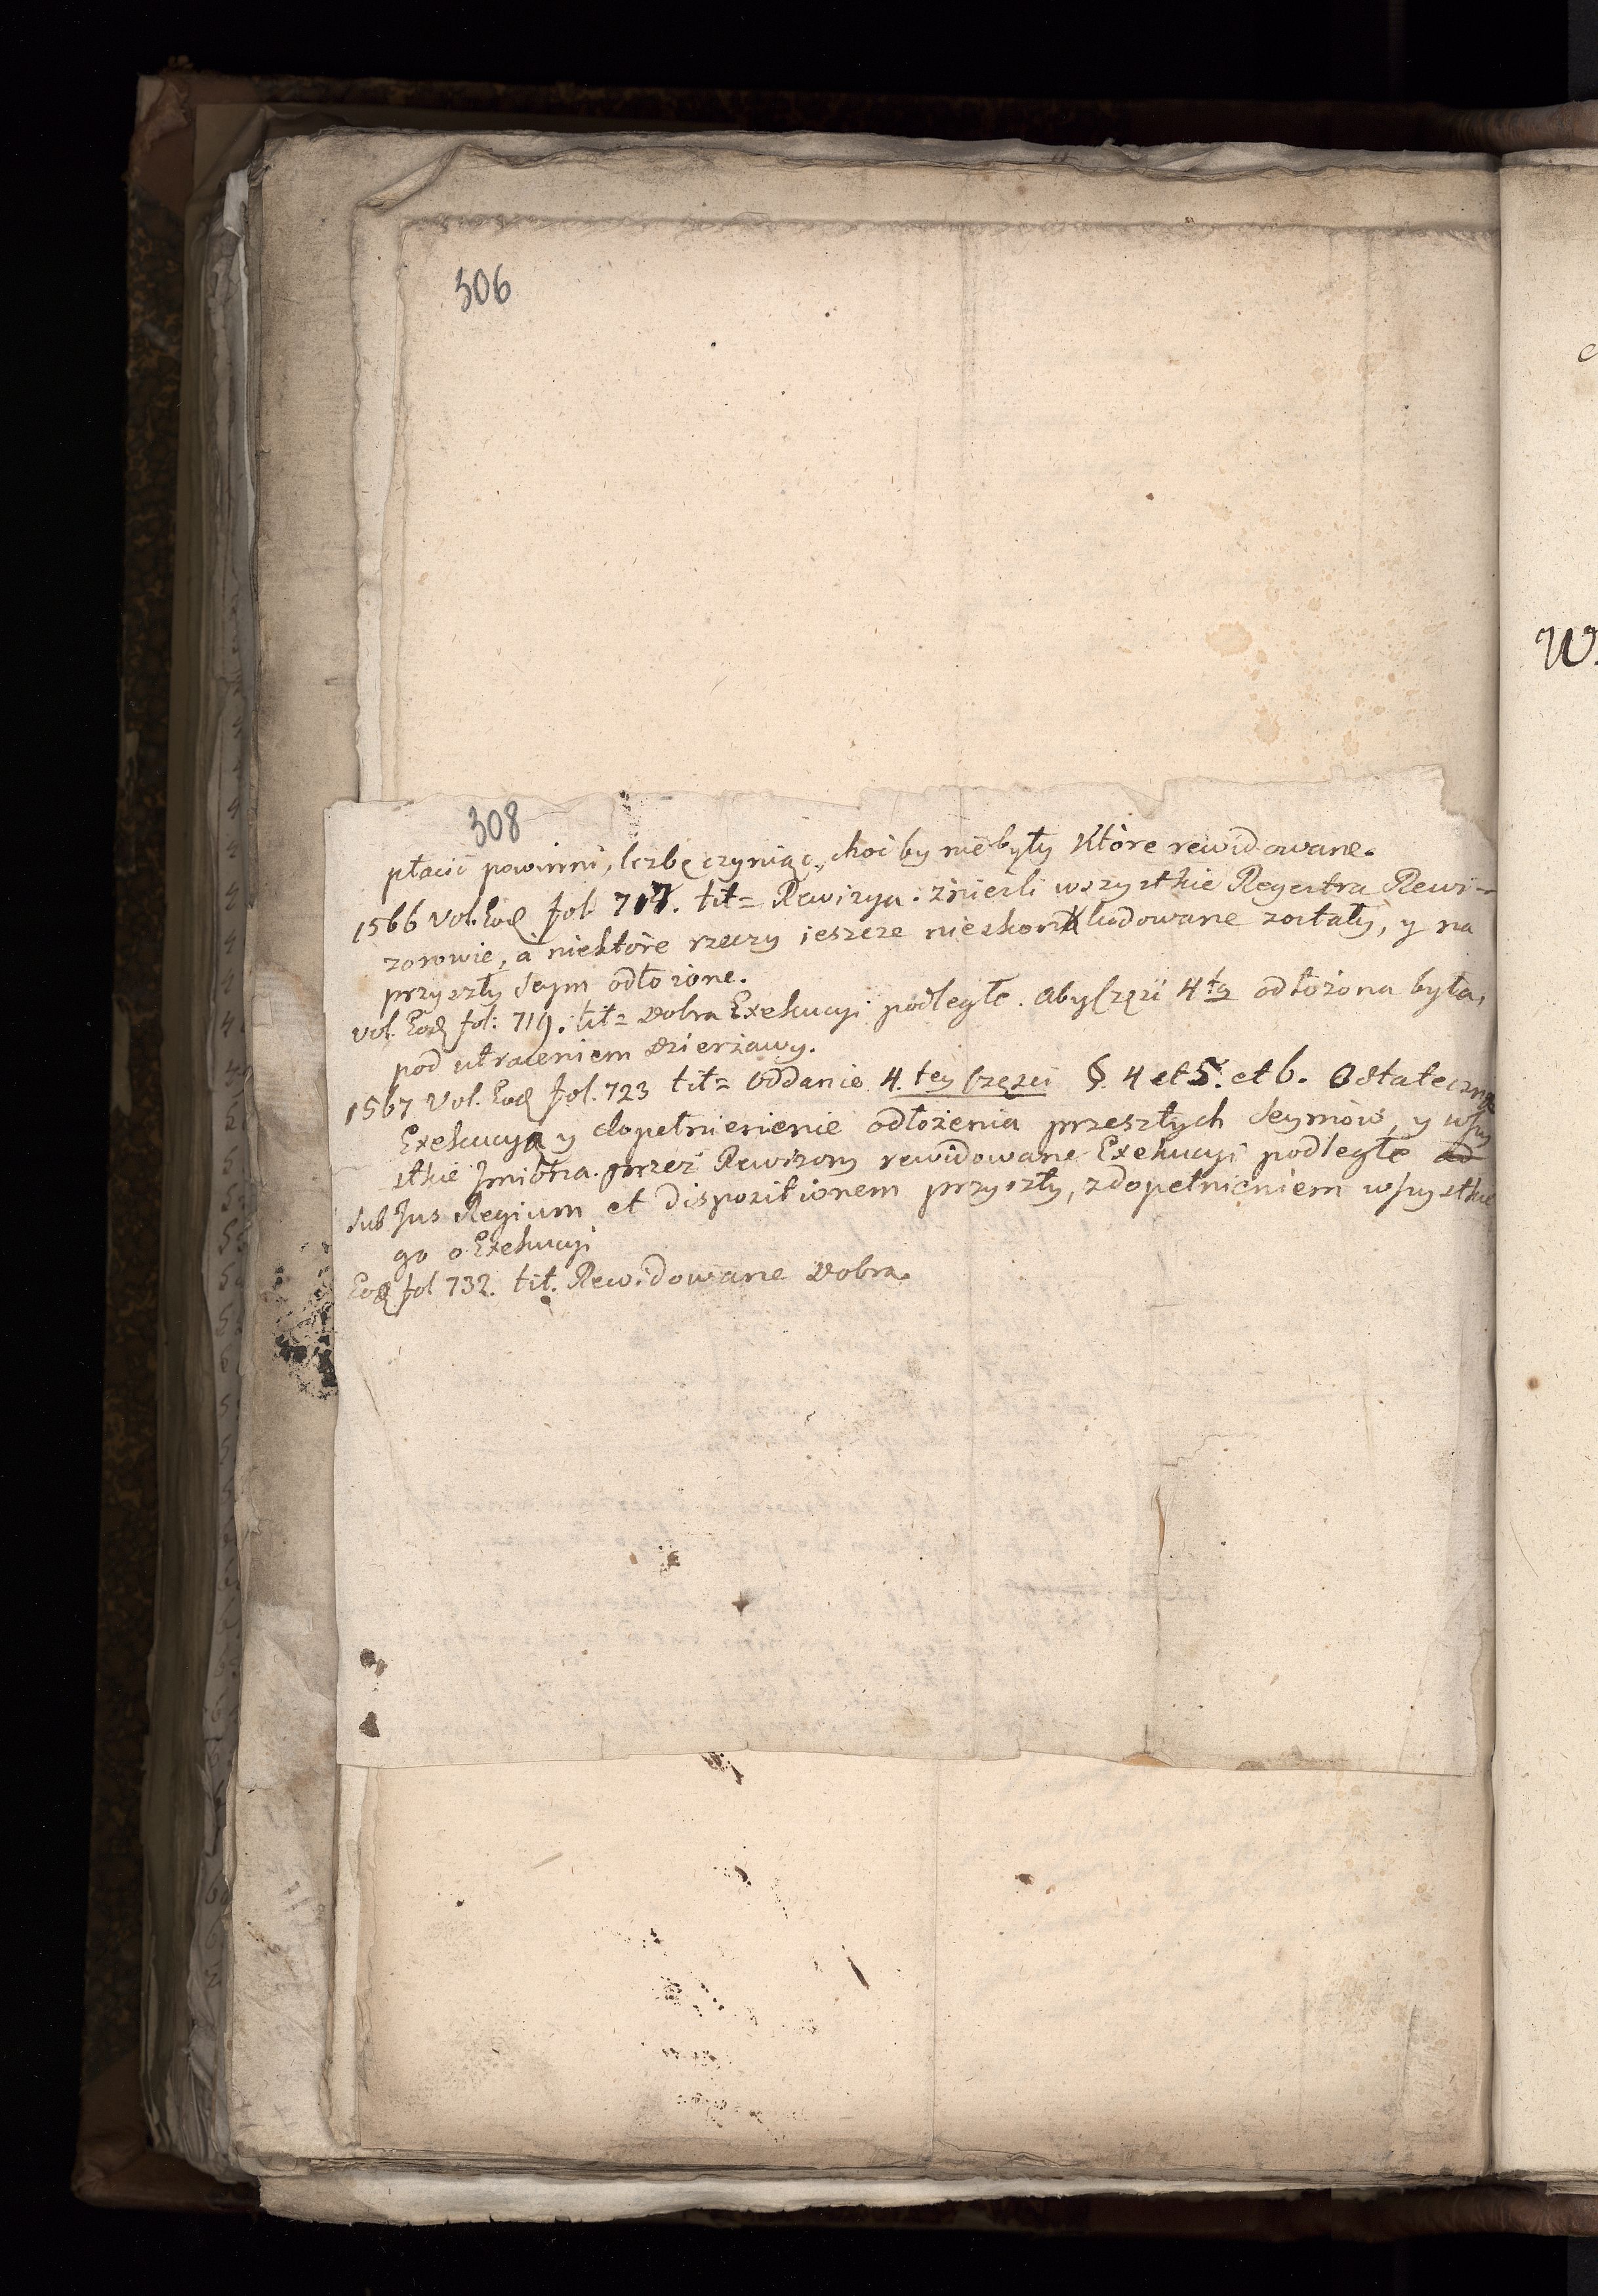 306
308
płacić powinni, liczbę czyniąc, choć by nie były które rewidowane.
1566 Vol. Eod fol 717. tit= Rewizya. znieśli wszystkie Regestra Rewi-
zorowie, a niektóre rzeczy ieszcze nieskonkludowane zostały, y na
przyszły Seym odłożone.
Vol. Eod fol: 719. tit= Dobra Exekucyi podległe. aby Częśi 4ta odłożona była,
pod utraceniem dzierżawy.
1567 Vol. Eod fol. 723 tit= Oddanie 4. tey Części §. 4 et 5. et 6. Ostateczna
Exekucya y dopełnienienie odłożenia przeszłych Seymów, y wszy
stkie Jmiona przez Rewizory rewidowane Exekucyi podległe
Sub Jus Regium et dispositionem przyszły, z dopełnieniem wszystkie
go o Exekucyi
Eod fol 732. tit. Rewidowane Dobra.
W.